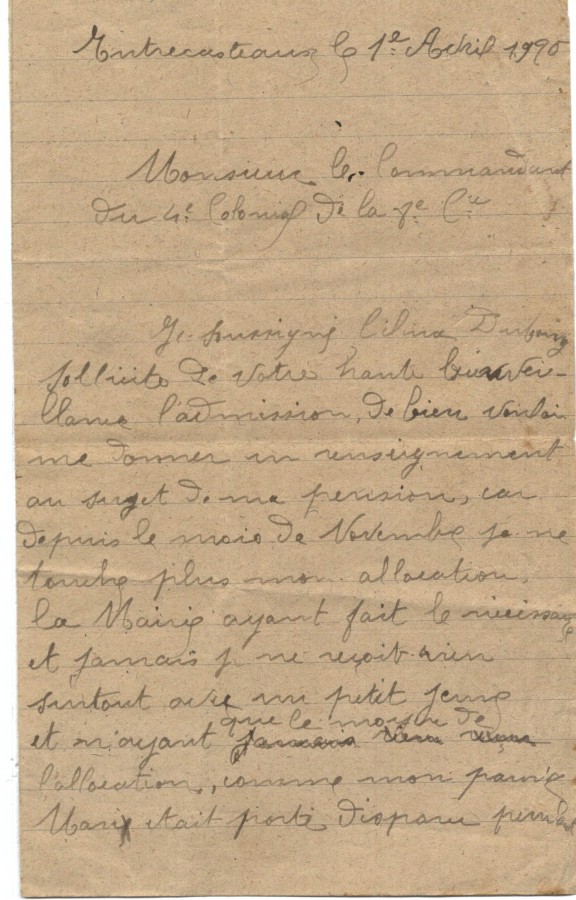 Entrecasteaux le 1e Avril 1920
Monsieur le Commandant
du 4e Colonial de la Cie
Je soussigné Dubourg
sollicite de votre haute bienvei-
llance l'admission, de bien vouloi
me donner un renseignement
au sujet de ma pension, car
depuis le mois de Novembre je ne
touche plus mon allocation,
la Mairie ayant fait le nécessaire
et jamais je ne reçoit rien
surtout avec un petit jeune
et n'ayant que le moyen de
l'allocation, comme mon pauvre
Mari etait porté disparu